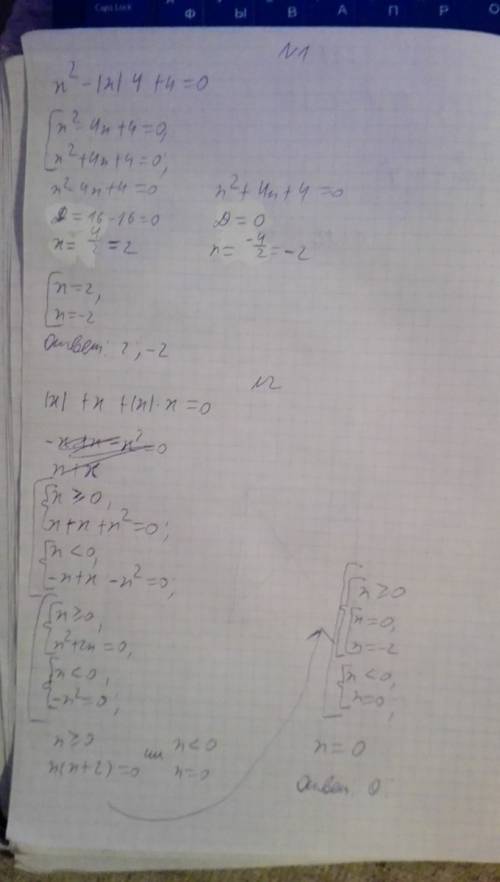 Caps Lock Ф Ы В А П Р О
N1
x² - |x| 4 + 4 = 0
x² - 4x + 4 = 0,
x² + 4x + 4 = 0;
x² - 4x + 4 = 0 x² + 4x + 4 = 0
D = 16 - 16 = 0 D = 0
x = 4/2 = 2 x = -4/2 = -2
x = 2,
x = -2
Ответ: 2, -2
N2
|x| + x + |x| · x = 0
x ≥ 0,
x + x + x² = 0;
x < 0,
-x + x - x² = 0;
x ≥ 0,
x² + 2x = 0,
x < 0,
-x² = 0;
x ≥ 0 или x < 0
x(x + 2) = 0 x = 0
x ≥ 0
x = 0,
x = -2
x < 0,
x = 0;
x = 0
Ответ: 0.